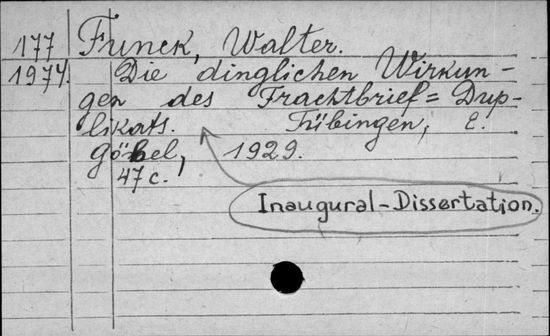 177 Funck, Walter.
1974. Die dinglichen Wirkun-
gen des Frachtbrief=Dup-
likats. Tübingen, E.
Göbel, 1929.
47 c.
Inaugural-Dissertation.